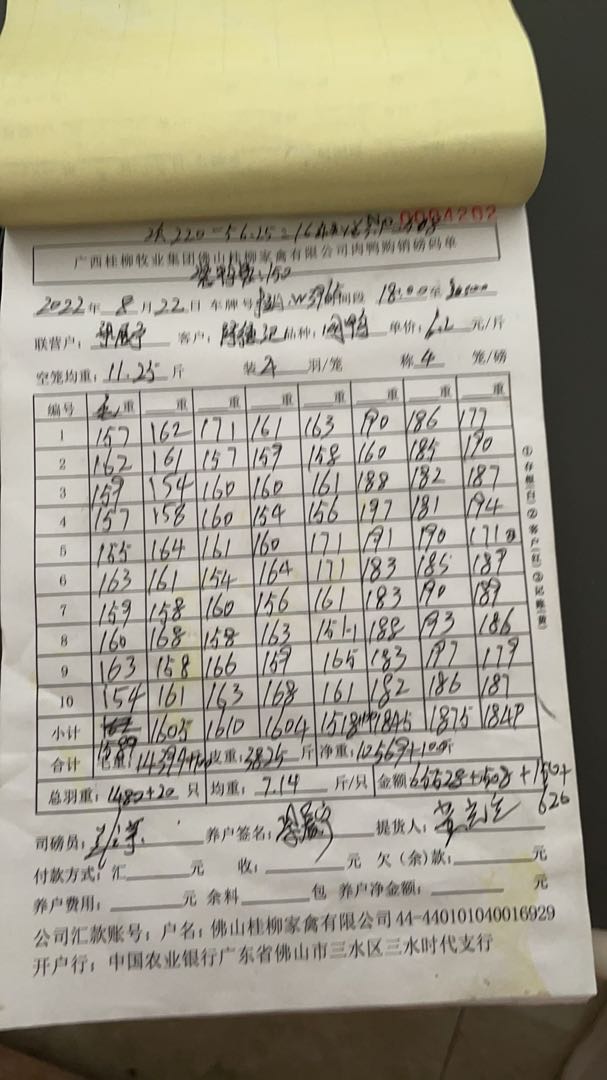 No 0004202
220-56.25=164
广西桂柳牧业集团佛山桂柳家禽有限公司肉鸭购销磅码单
:150
2022年 8月22日 车牌号 W3965 时间段 18:00至
联营户: 客户: 品种: 单价:6.2 元/斤
空笼均重:11.25 斤 装 羽/笼 称 4 笼/磅
编号 毛重 重 重 重 重 重 重 重
1 157 162 171 161 163 190 186 177
2 162 161 157 159 158 160 185 190
3 159 154 160 160 161 188 182 187
4 157 158 160 154 156 197 181 194
5 155 164 161 160 171 191 190 171
6 163 161 154 164 171 183 185 189
7 159 158 160 156 161 183 190 189
8 160 168 158 163 151-1 188 193 186
9 163 158 166 159 165 183 197 179
10 154 161 163 168 161 182 186 187
小计 1605 1610 1604 1518 1845 1875 1849
合计 毛重:14394 皮重:3825 斤 净重:10569+100斤
总羽重:1480+20 只 均重:7.14 斤/只 金额65528+508+150+
626
司磅员: 养户签名: 提货人:
付款方式:汇 元 收: 元 欠(余)款: 元
养户费用: 元 余料 包 养户净金额: 元
公司汇款账号:户名:佛山桂柳家禽有限公司 44-440101040016929
开户行:中国农业银行广东省佛山市三水区三水时代支行
①存根(白)②客户(红)③记账(黄)